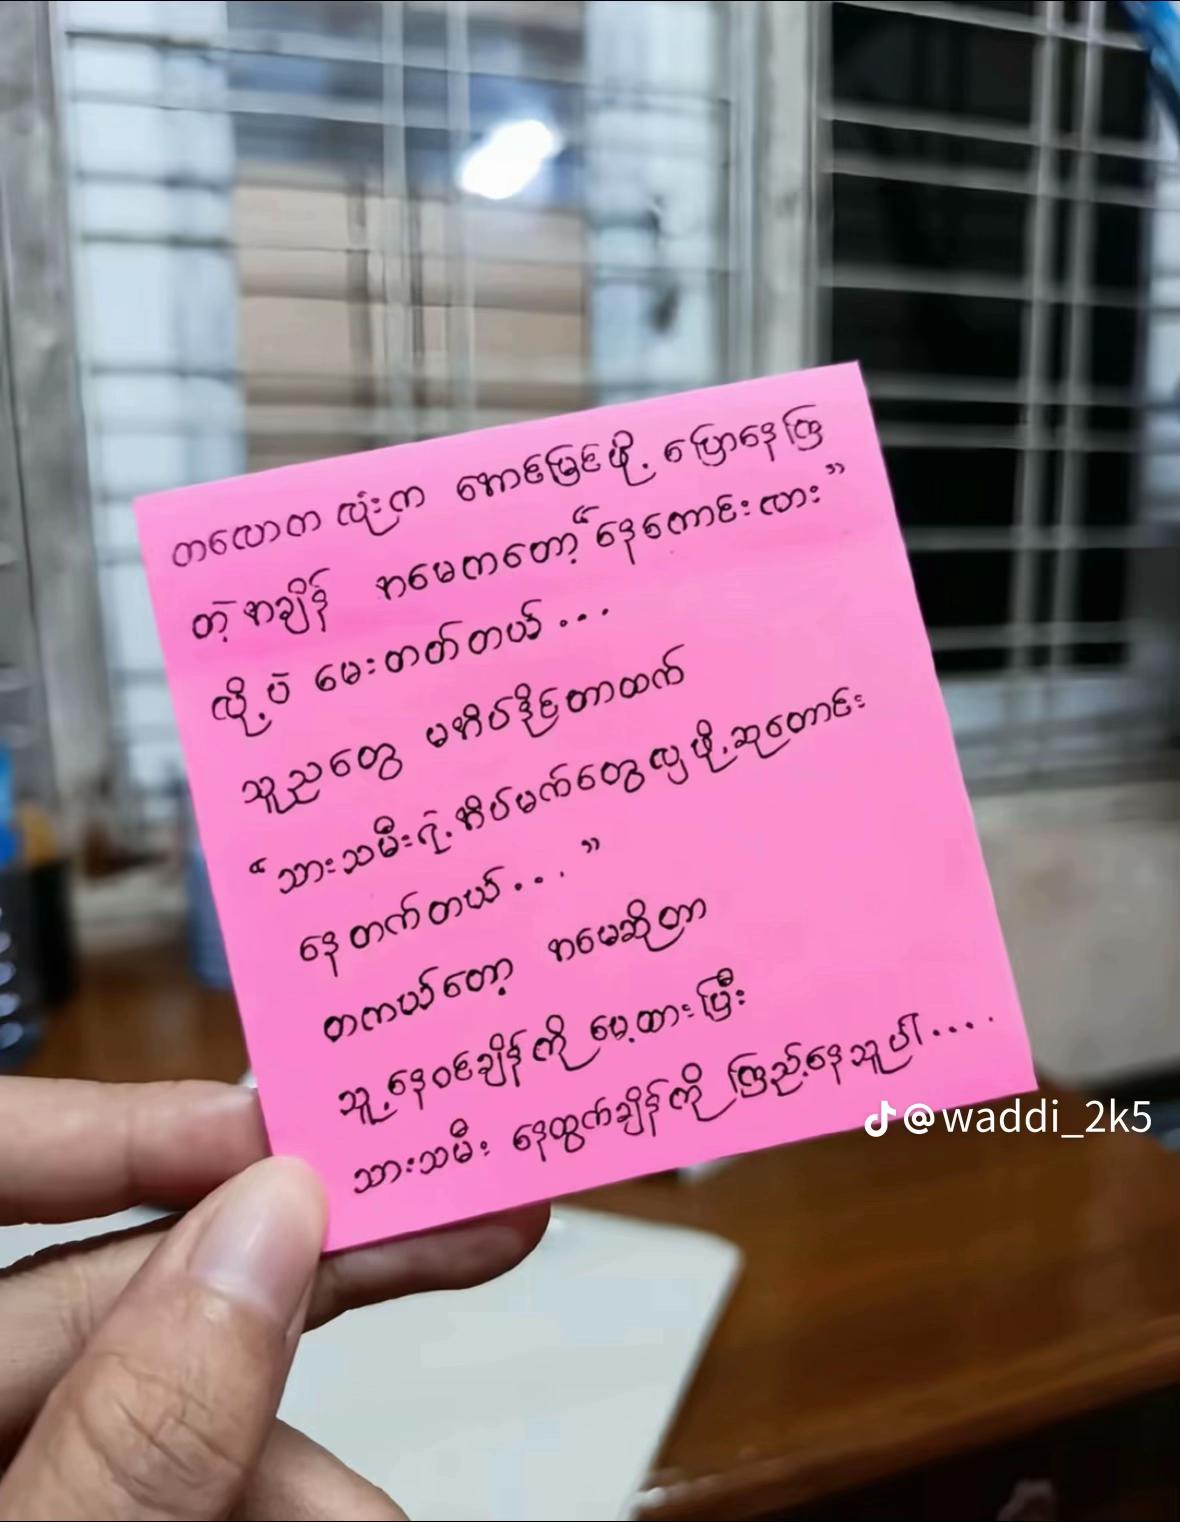 တလောက လုံးက အောင်မြင်ဖို့ ပြောနေကြ
တဲ့အချိန် အမေကတော့ “နေကောင်းလား”
လို့ပဲ မေးတတ်တယ်...
သူညတွေ မအိပ်နိုင်တာထက်
“သားသမီးရဲ့အိပ်မက်တွေလှဖို့ဆုတောင်း
နေတက်တယ်...”
တကယ်တော့ အမေဆိုတာ
သူ့နေဝင်ချိန်ကို မေ့ထားပြီး
သားသမီး နေထွက်ချိန်ကို ကြည့်နေသူပါ....
@waddi_2k5